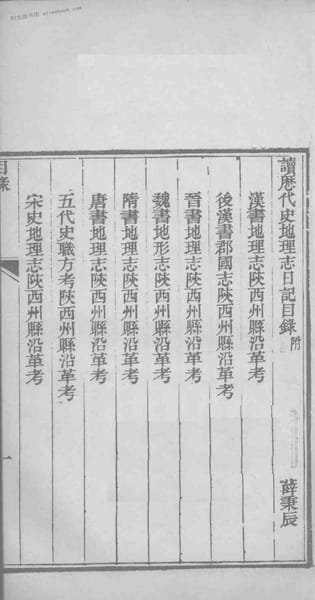 讀歷代史地理志日記目錄 附
薛秉辰
漢書地理志陝西州縣沿革考
後漢書郡國志陝西州縣沿革考
晉書地理志陝西州縣沿革考
魏書地形志陝西州縣沿革考
隋書地理志陝西州縣沿革考
唐書地理志陝西州縣沿革考
五代史職方考陝西州縣沿革考
宋史地理志陝西州縣沿革考
目錄
一